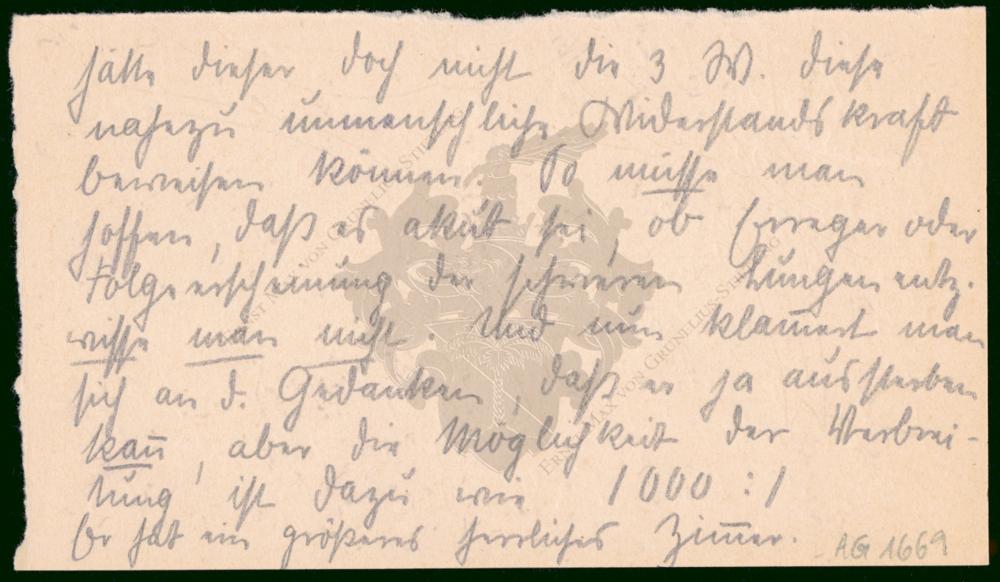 hätte dieser doch nicht die 3 W. diese
nahezu unmenschliche Widerstandskraft
beweisen können. So müsse man
hoffen, daß es akut sei, ob Erreger oder
Folgeerscheinung der schweren Lungenentz.
wisse man nicht. Und nun klam̄ert man
sich an d. Gedanken, daß er ja aussterben
kan̄, aber die Möglichkeit der Verbrei-
tung ist dazu wie 1000 : 1
Er hat ein größeres herrliches Zim̄er.
AG 1669
ERNST MAX VON GRUNELIUS-STIFTUNG
ERNST MAX VON GRUNELIUS-STIFTUNG